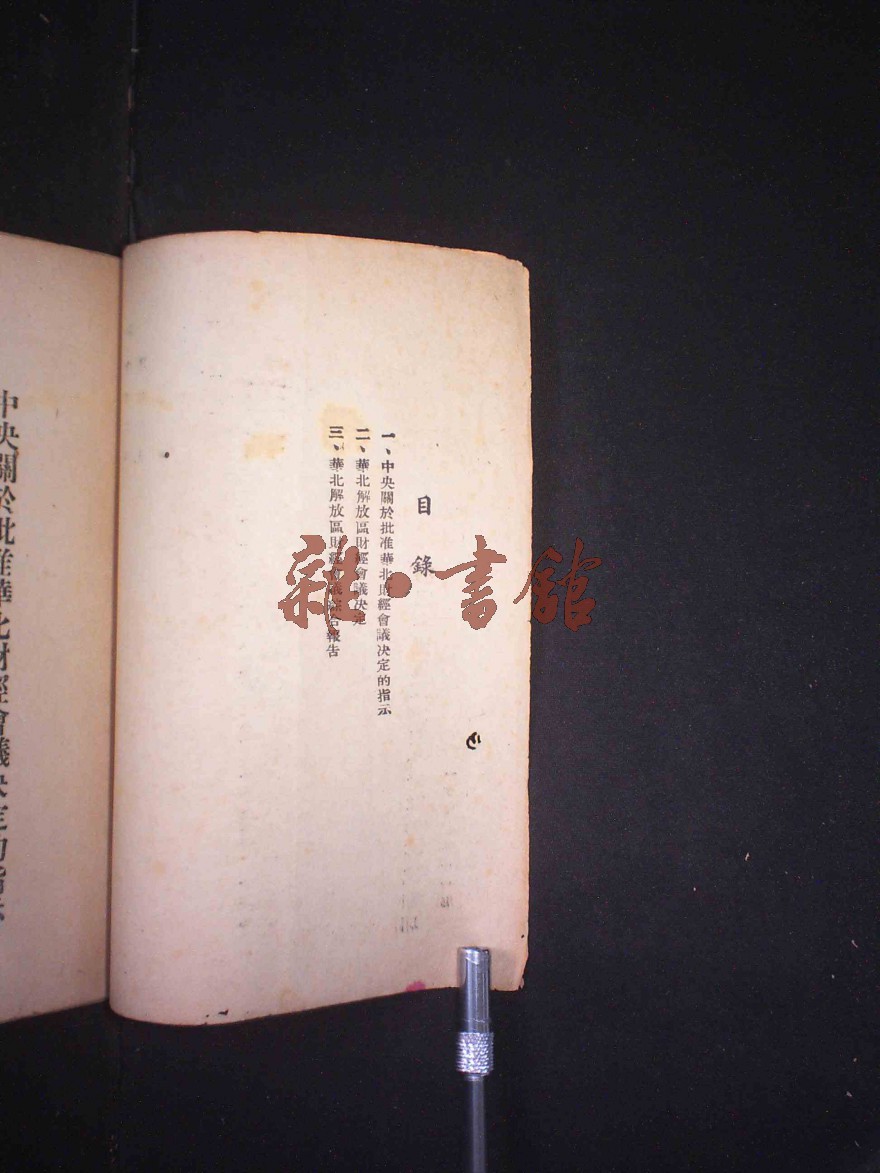 目錄
一、中央關於批准華北財經會議决定的指示
二、華北解放區財經會議决定
三、華北解放區財經會議綜合報告
中央關於批准華北財經會議决定的指示
雜·書館